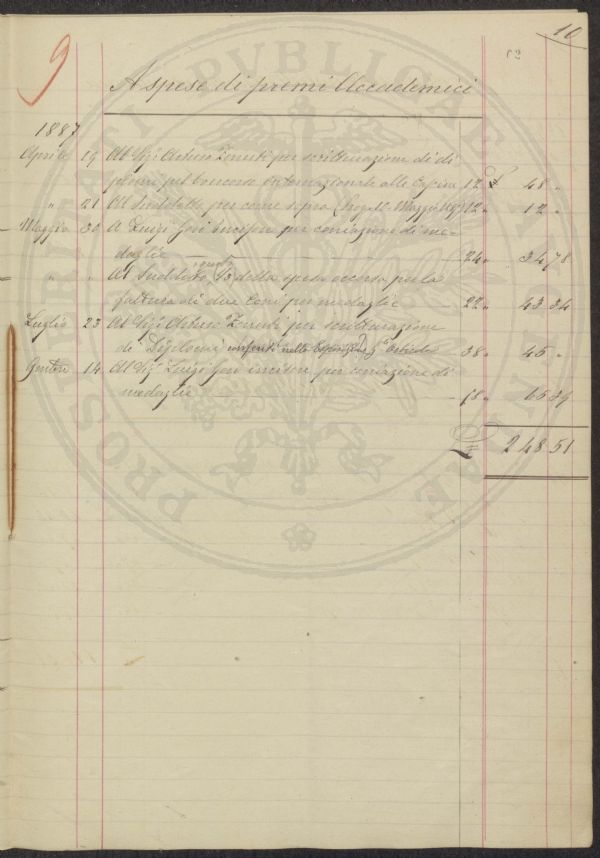 9
10
A spese di premi Accademici
1887
Aprile 19 Al Sig. Arturo Zenuti per scritturazione di di
plomi pel Concorso internazionale alle Cascine 12 £ 48 "
" 21 Al Suddetto per come sopra Maggio 1887 12 " 12 "
Maggio 30 A Luigi Gori Incisore per coniazione di me-
daglie 24 " 34 78
" " Al Suddetto, della spesa occorsa per la
fattura di due Coni per medaglie 22 " 43 34
Luglio 23 Al Sig. Arturo Zenuti per scritturazione
di Diplomi nella Esposizione 38 " 45 "
14 Al Sig. Luigi Gori incisore, per coniazione di
medaglie 78 " 65 39
£ 248.51
PROSPERITATI PVBLICAE